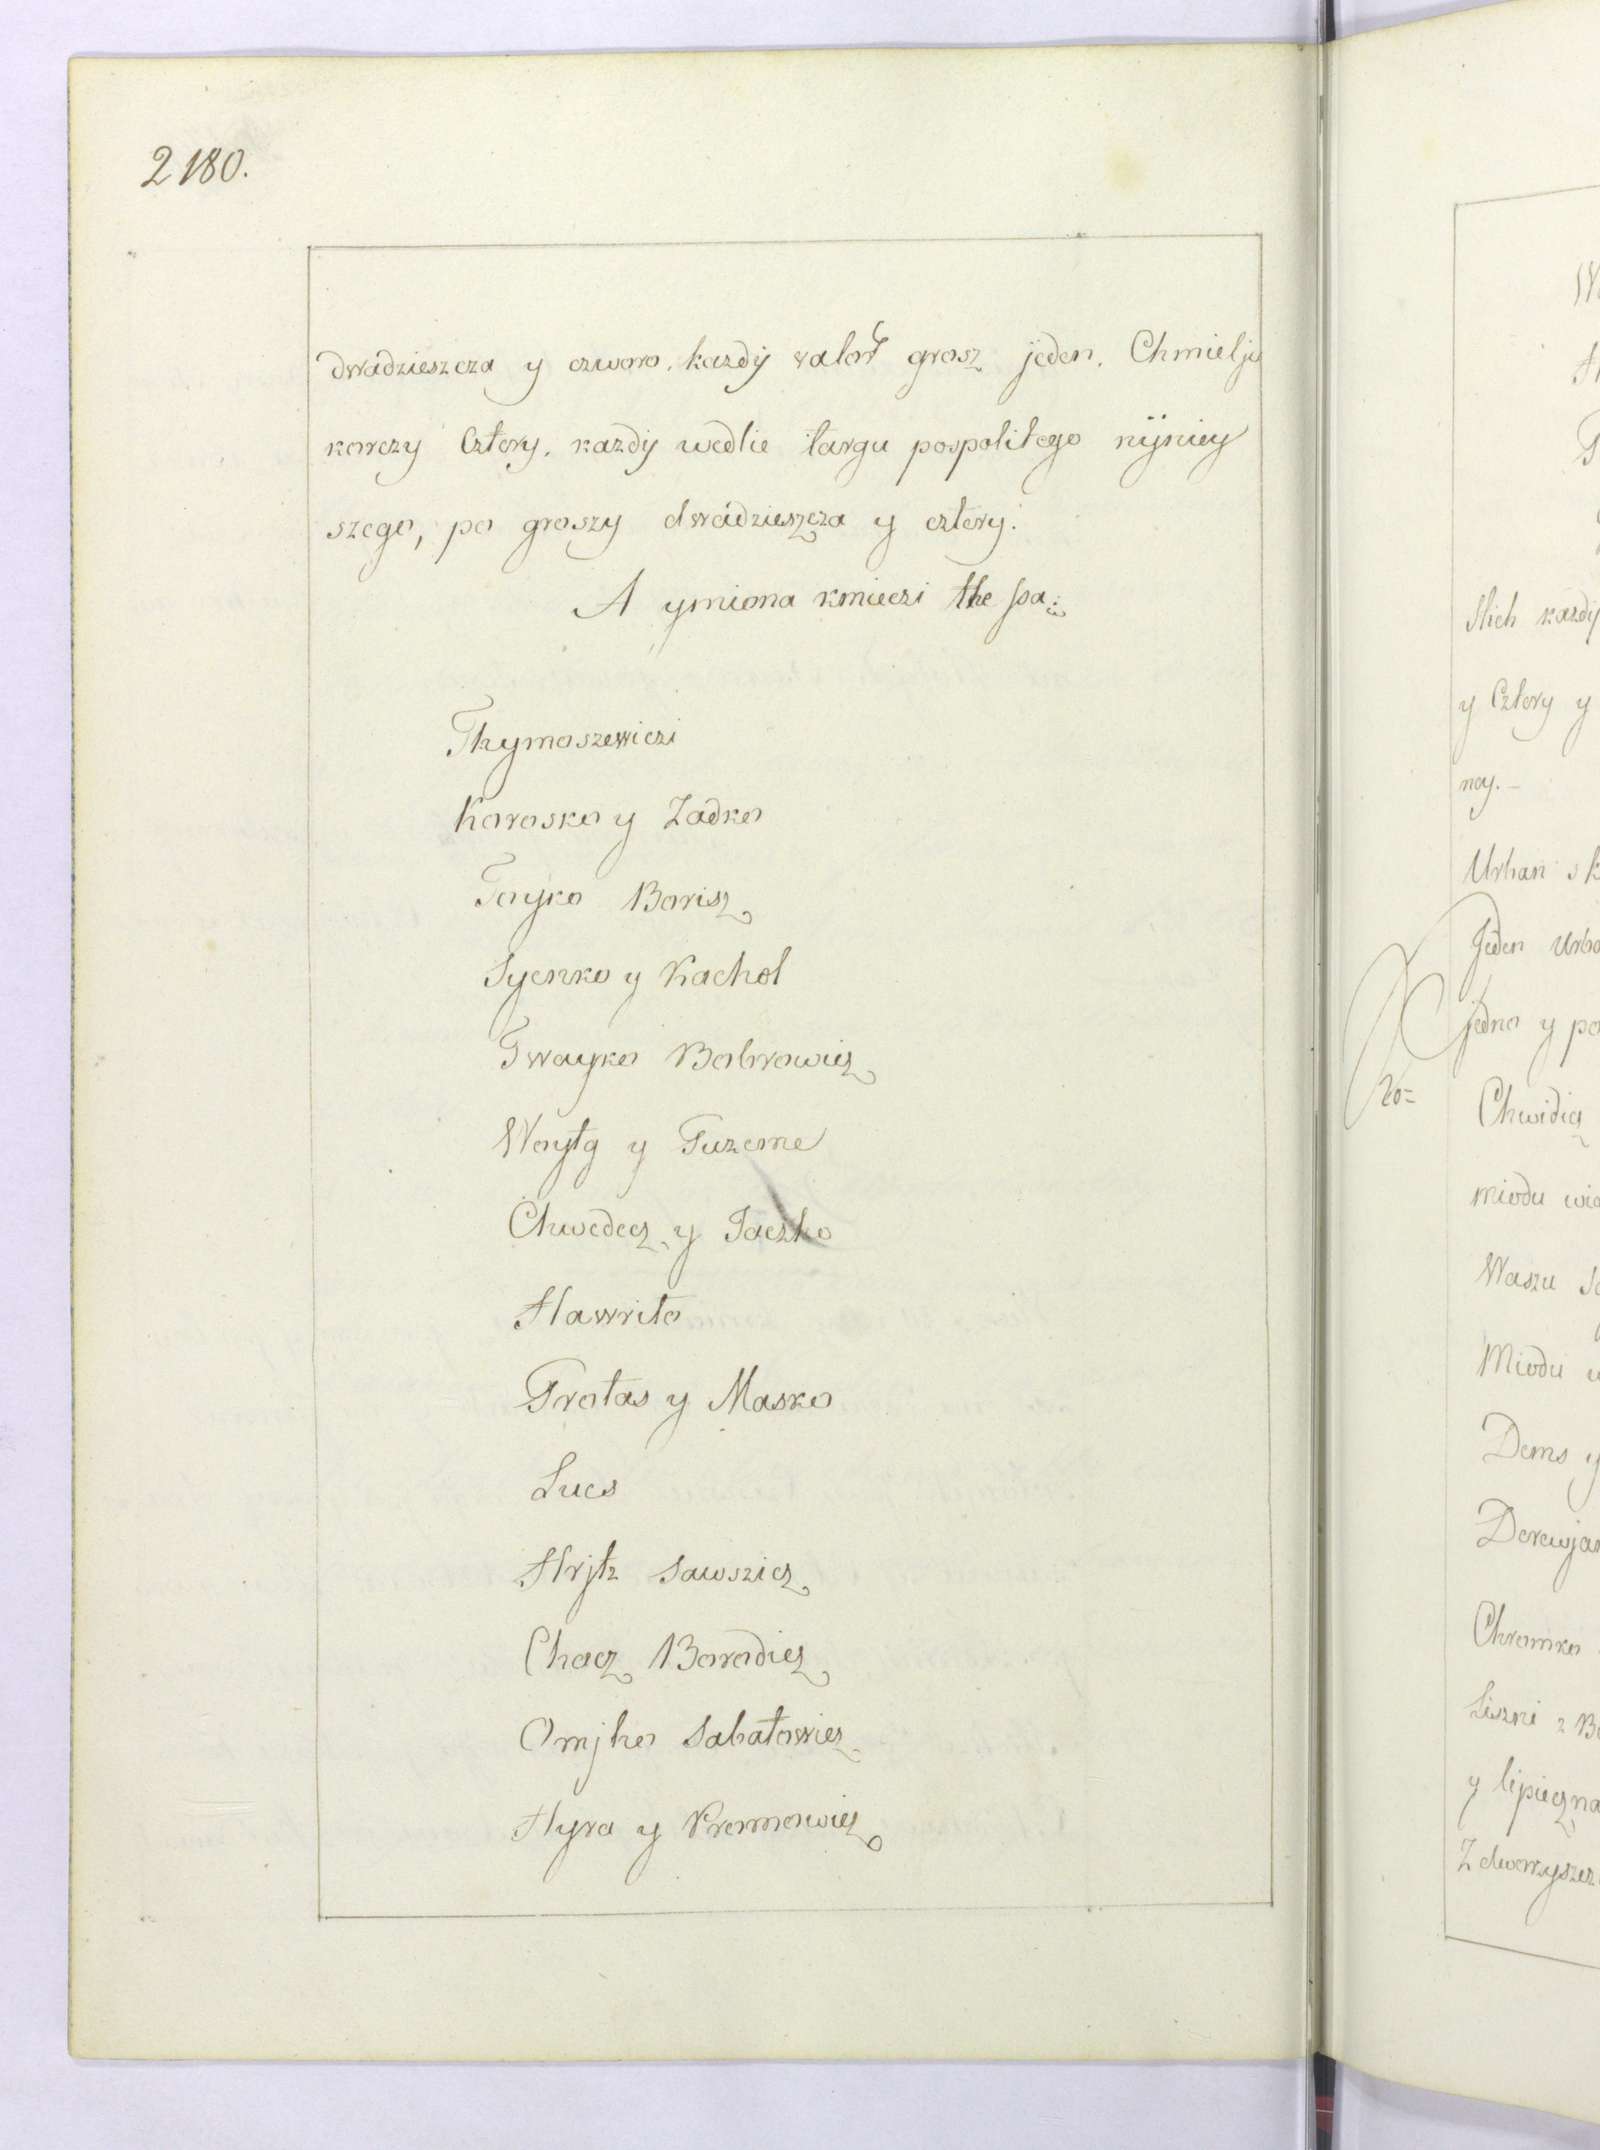 2180.
dwadzieszcza y czworo. każdÿ valor grosz jeden. Chmielju
korczy Cztory. każdÿ wedlie targu pospolitego nÿniey
szego, po groszy dwádzieszcza y cztery.
A ymiona kmieczi the są:
Thymoszewiczi
Korosko y Zadko
Toyko Borisz
Syenko y Kachol
Iwayko Bobrowicz
Woytg y Tuzeme
Chwedecz y Jaczko
Hawrito
Protas y Masko
Lucs
Hrjtz Sawszicz
Chocz Borodicz
Omjko Sabatowicz
Hyra y Promowicz
slich każdÿ
y Cztery y
ney. -
Urban s k
Jeden Urba
jedno y po
Chwidicz
miodu wia
Waszu
Miodu
Dems y
Derewjan
Chromko
Liszni z
y lipiecz na
Z dworzyszcz